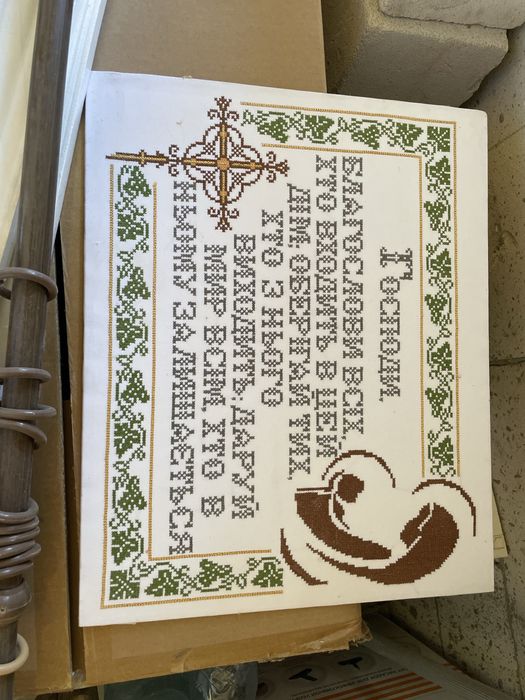 Господи,
БЛАГОСЛОВИ ВСІХ,
ХТО ВХОДИТЬ В ЦЕЙ
ДІМ, ОБЕРІГАЙ ТИХ,
ХТО З НЬОГО
ВИХОДИТЬ, ДАРУЙ
МИР ВСІМ, ХТО В
НЬОМУ ЗАЛИШАЄТЬСЯ